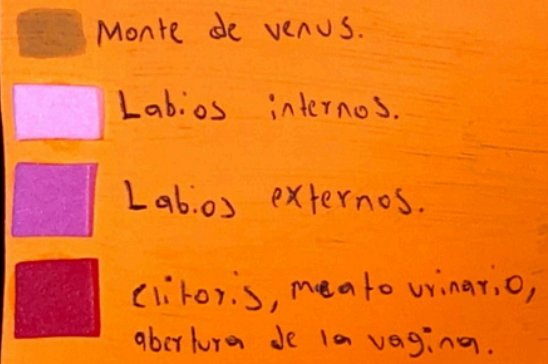 Monte de venus.
Labios internos.
Labios externos.
clitoris, meato urinario,
abertura de la vagina.